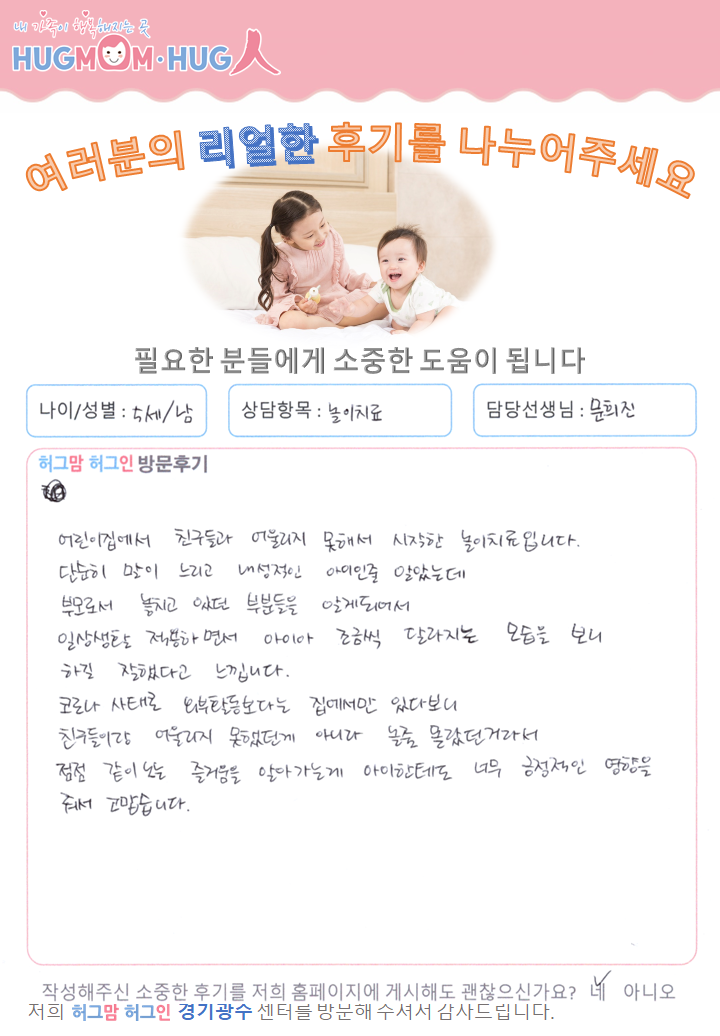 내 가족이 행복해지는 곳
HUGMOM·HUG人
여러분의 리얼한 후기를 나누어주세요
필요한 분들에게 소중한 도움이 됩니다
나이/성별 : 5세/남
상담항목 : 놀이치료
담당선생님 : 문희진
허그맘 허그인 방문후기
어린이집에서 친구들과 어울리지 못해서 시작한 놀이치료입니다.
단순히 말이 느리고 내성적인 아이인줄 알았는데
부모로서 놓치고 있던 부분들을 알게되어서
일상생활 적용하면서 아이아 조금씩 달라지는 모습을 보니
하길 잘했다고 느낍니다.
코로나 사태로 외부활동보다는 집에서만 있다보니
친구들이랑 어울리지 못했던게 아니라 놀줄 몰랐던거라서
점점 같이 노는 즐거움을 알아가는게 아이한테도 너무 긍정적인 영향을
줘서 고맙습니다.
작성해주신 소중한 후기를 저희 홈페이지에 게시해도 괜찮으신가요? 네 아니오
저희 허그맘 허그인 경기광수 센터를 방문해 주셔서 감사드립니다.